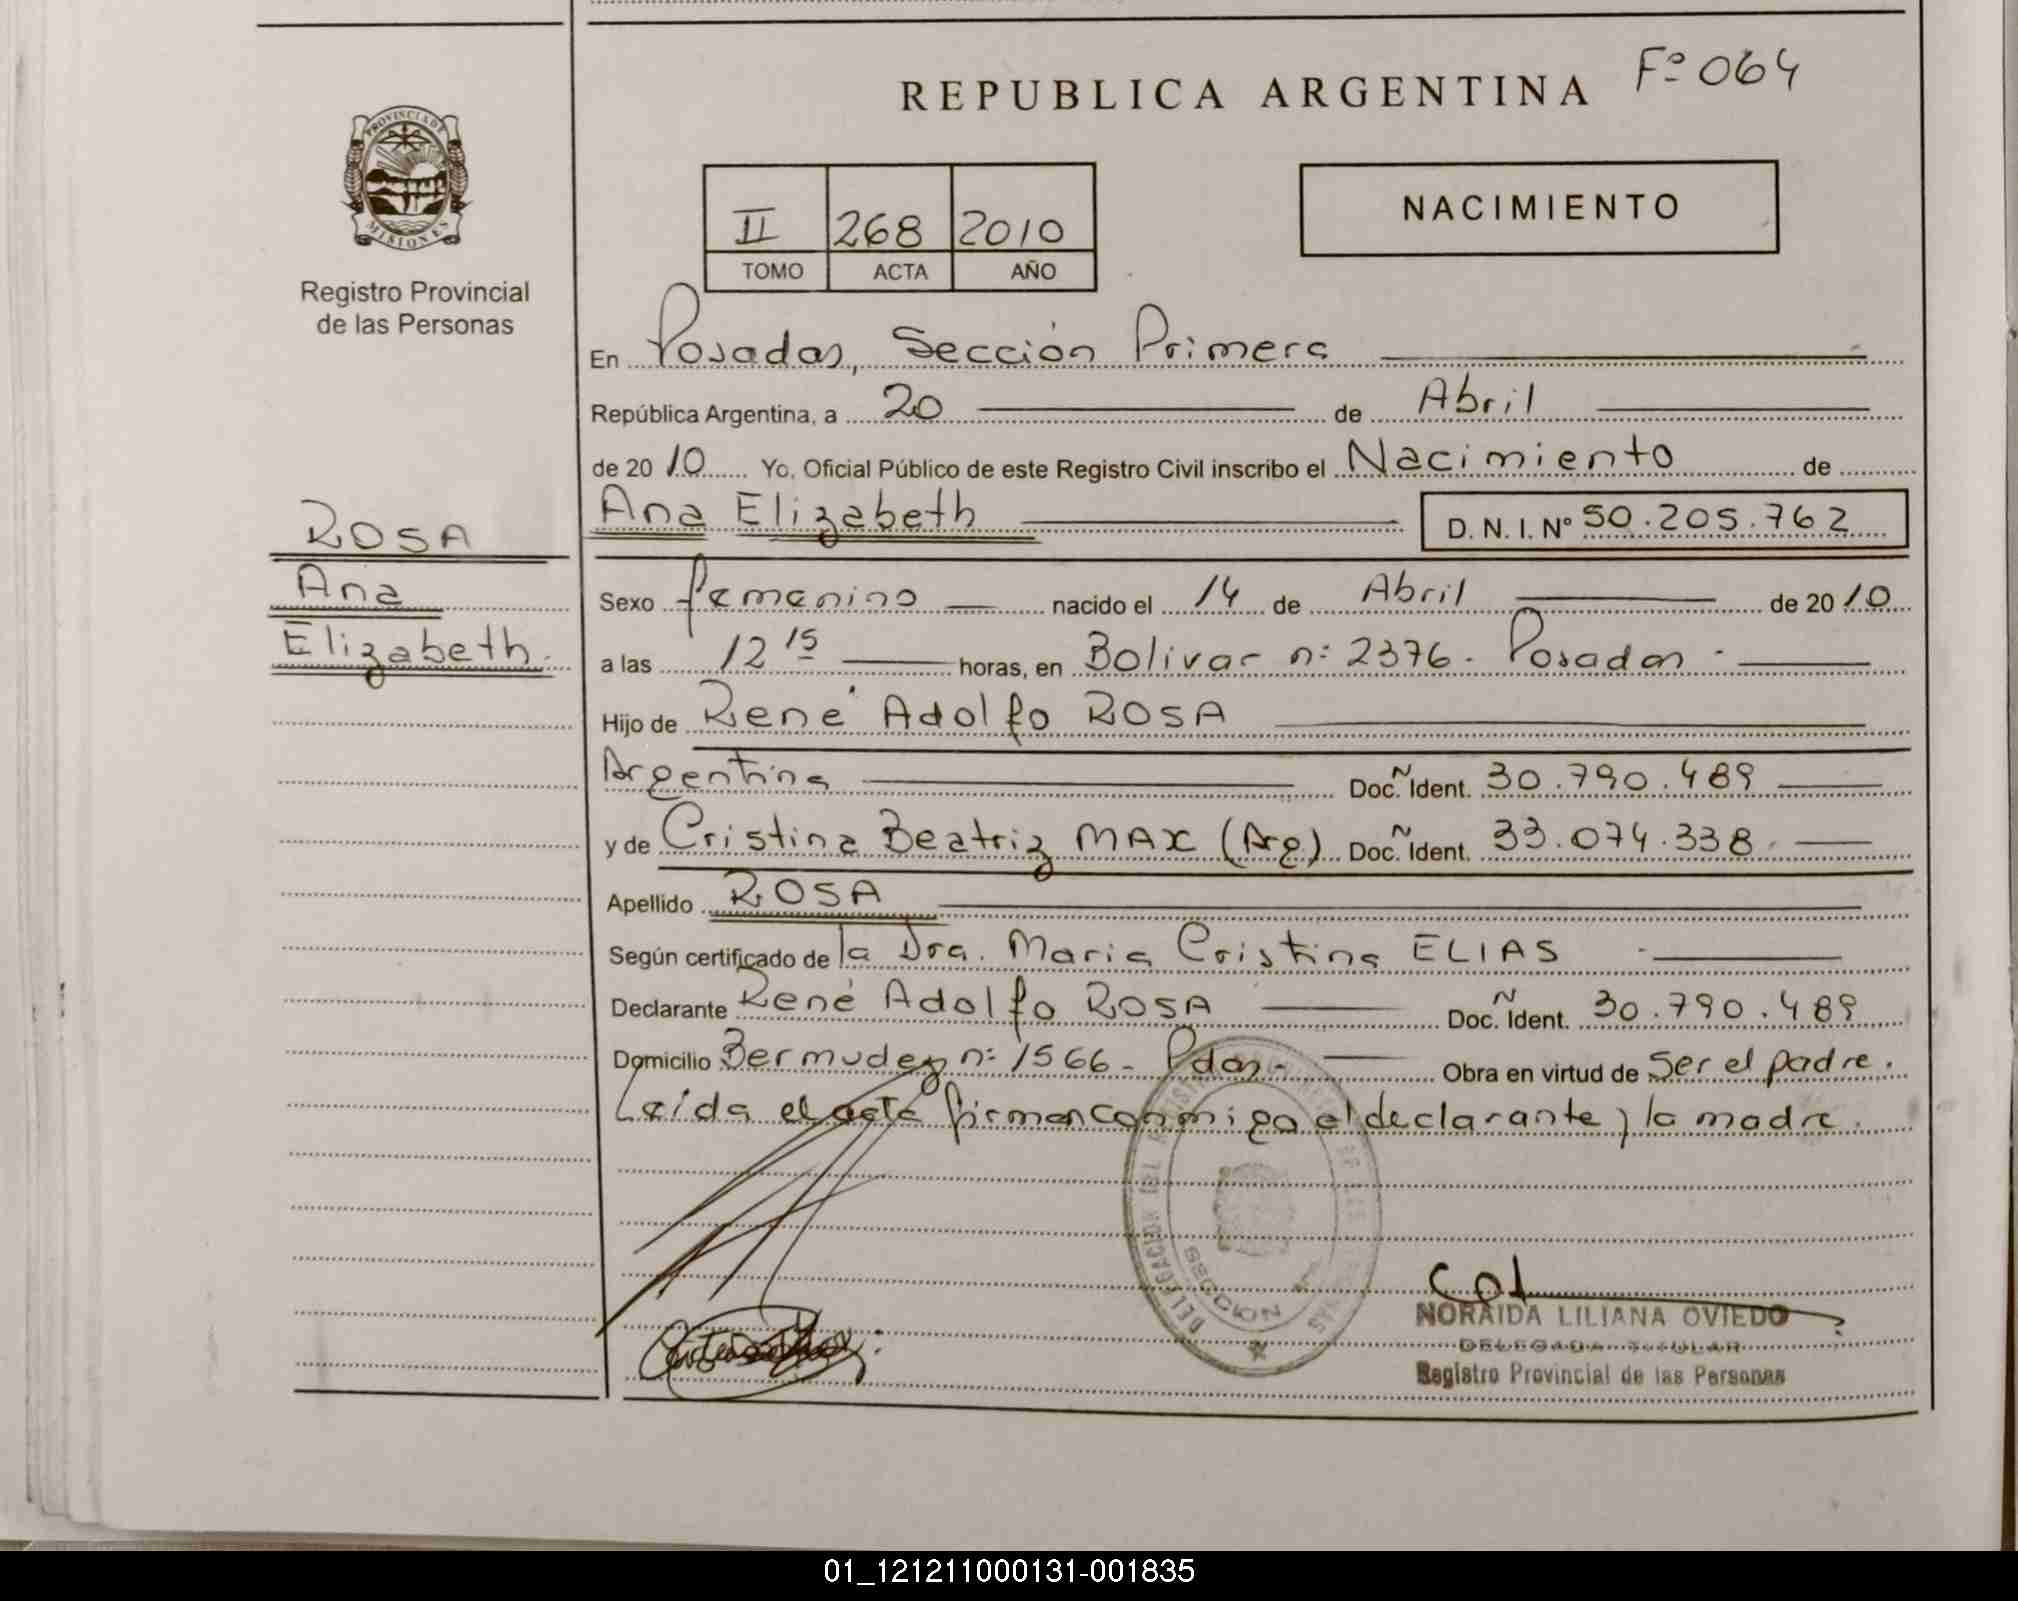 REPUBLICA ARGENTINA Fº 064
PROVINCIA DE
MISIONES
Registro Provincial
de las Personas
NACIMIENTO
II 268 2010
TOMO ACTA AÑO
En Posadas, Sección Primera
República Argentina, a 20 de Abril
de 20 10 Yo, Oficial Público de este Registro Civil inscribo el Nacimiento de
Ana Elizabeth D. N. I. Nº 50.205.762
ROSA
Ana
Elizabeth.
Sexo femenino nacido el 14 de Abril de 20 10
a las 12 15 horas, en Bolivar n: 2376. Posadas.
Hijo de René Adolfo ROSA
Argentina Doc. Ident. 30.790.489
y de Cristina Beatriz MAX (Arg) Doc. Ident. 33.074.338.
Apellido ROSA
Según certificado de la Dra. Maria Cristina ELIAS
Declarante René Adolfo ROSA Doc. Ident. 30.790.489
Domicilio Bermudez n: 1566. Pdas. Obra en virtud de Ser el padre.
Leída el acta firman conmigo el declarante y la madre.
DELEGACION DEL
SECCION
NORAIDA LILIANA OVIEDO
DELEGADA TITULAR
Registro Provincial de las Personas
01_121211000131-001835